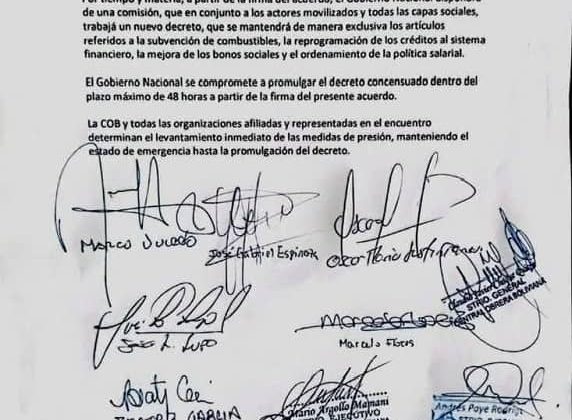 Por tiempo y materia, a partir de la firma del acuerdo, el Gobierno Nacional dispondrá
de una comisión, que en conjunto a los actores movilizados y todas las capas sociales,
trabajá un nuevo decreto, que se mantendrá de manera exclusiva los artículos
referidos a la subvención de combustibles, la reprogramación de los créditos al sistema
financiero, la mejora de los bonos sociales y el ordenamiento de la política salarial.
El Gobierno Nacional se compromete a promulgar el decreto concensuado dentro del
plazo máximo de 48 horas a partir de la firma del presente acuerdo.
La COB y todas las organizaciones afiliadas y representadas en el encuentro
determinan el levantamiento inmediato de las medidas de presión, manteniendo el
estado de emergencia hasta la promulgación del decreto.
Marco Oviedo
José Gabriel Espinoza
Oscar Mario
STRIO. GENERAL
CENTRAL OBRERA BOLIVIANA
José L. Lupo
Marcelo Flores
GARCIA
Mario Argollo Mamani
EJECUTIVO
Andrés Paye Rodrig